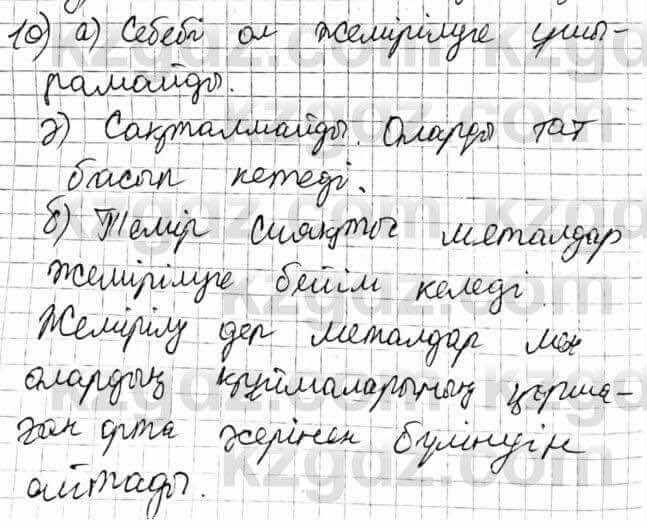 10) а) Себебі ол жемірілуге ұшы-
рамайды.
ә) Сақталмайды. Оларды тат
басып кетеді.
б) Темір сияқты металдар
жемірілуге бейім келеді
Жемірілу деп металдар мен
олардың құймаларының қорша-
ған орта әсерінен бүлінуін
айтады.